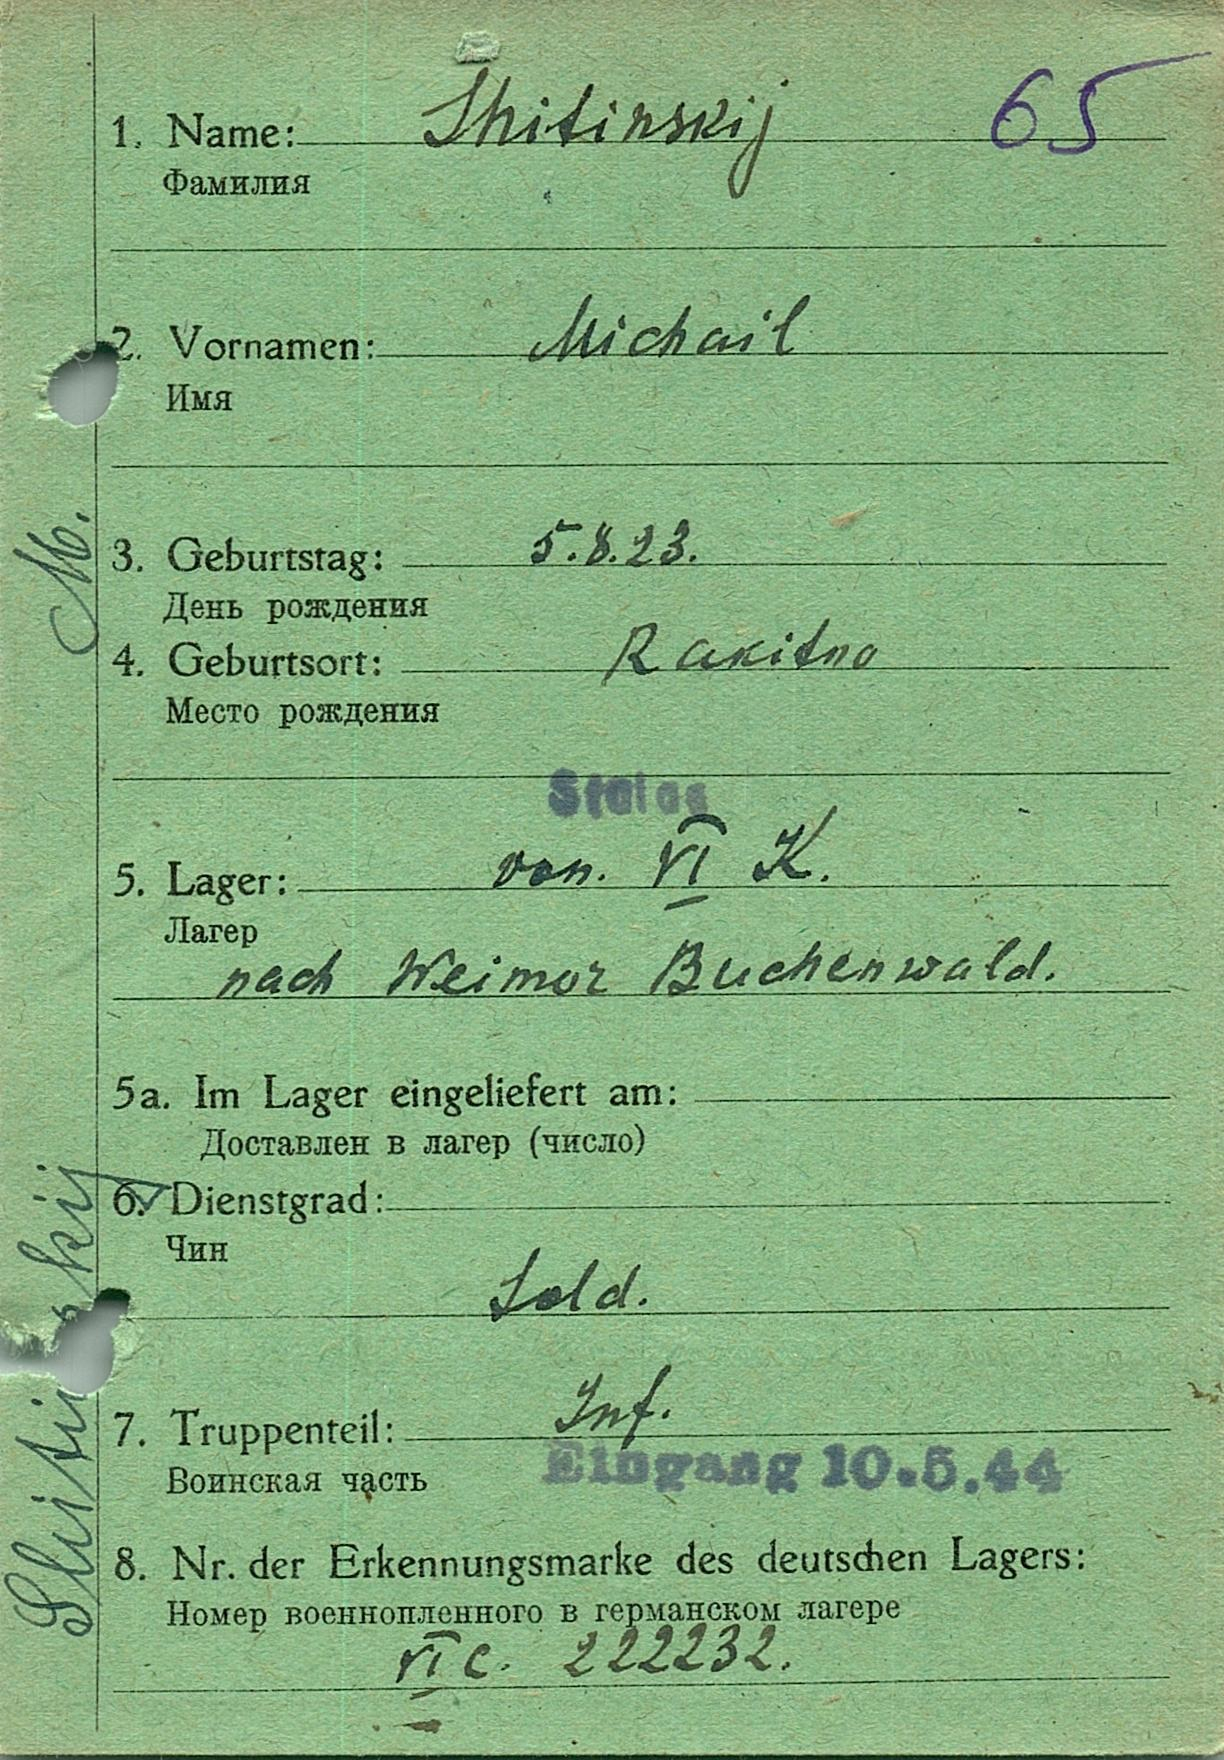 65
1. Name: Shitinskij
Фамилия
2. Vornamen: Michail
Имя
3. Geburtstag: 5.8.23.
День рождения
4. Geburtsort: Rakitno
Место рождения
Stalag
5. Lager: von. VI K.
Лагер
nach Weimar Buchenwald.
5a. Im Lager eingeliefert am:
Доставлен в лагер (число)
6. Dienstgrad:
Чин
Sold.
7. Truppenteil: Inf.
Воинская часть
Eingang 10.5.44
8. Nr. der Erkennungsmarke des deutschen Lagers:
Номер военнопленного в германском лагере
VI C. 222232.
M.